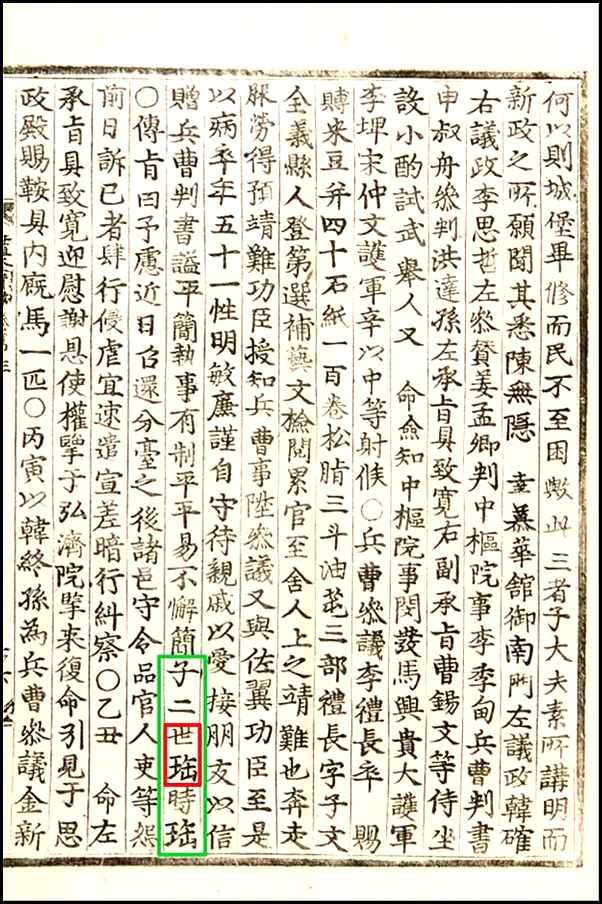 何以則城堡畢修而民不至困歟此三者子大夫素所講明而
新政之所願聞其悉陳無隱 幸慕華館御南門左議政韓確
右議政李思哲左參贊姜孟卿判中樞院事李季甸兵曹判書
申叔舟參判洪達孫左承旨具致寬右副承旨曹錫文等侍坐
設小酌試武擧人又 命僉知中樞院事閔發馬興貴大護軍
李坪宋仲文護軍辛以中等射候○兵曹參議李禮長卒 賜
賻米豆幷四十石紙一百卷松脂三斗油芚三部禮長字子文
全義縣人登第選補藝文檢閱累官至舍人上之靖難也奔走
服勞得預靖難功臣授知兵曹事陞參議又與佐翼功臣至是
以病卒年五十一性明敏廉謹自守待親戚以愛接朋友以信
贈兵曹判書謚平簡執事有制平平易不懈簡子二世珤時珤
○傳旨曰予慮近日召還分臺之後諸邑守令品官人吏等怨
前日訴己者肆行侵虐宜速遣宣差暗行糾察○乙丑 命左
承旨具致寬迎慰謝恩使權擥于弘濟院擥來復命引見于思
政殿賜鞍具內廐馬一匹○丙寅以韓終孫爲兵曹參議金新